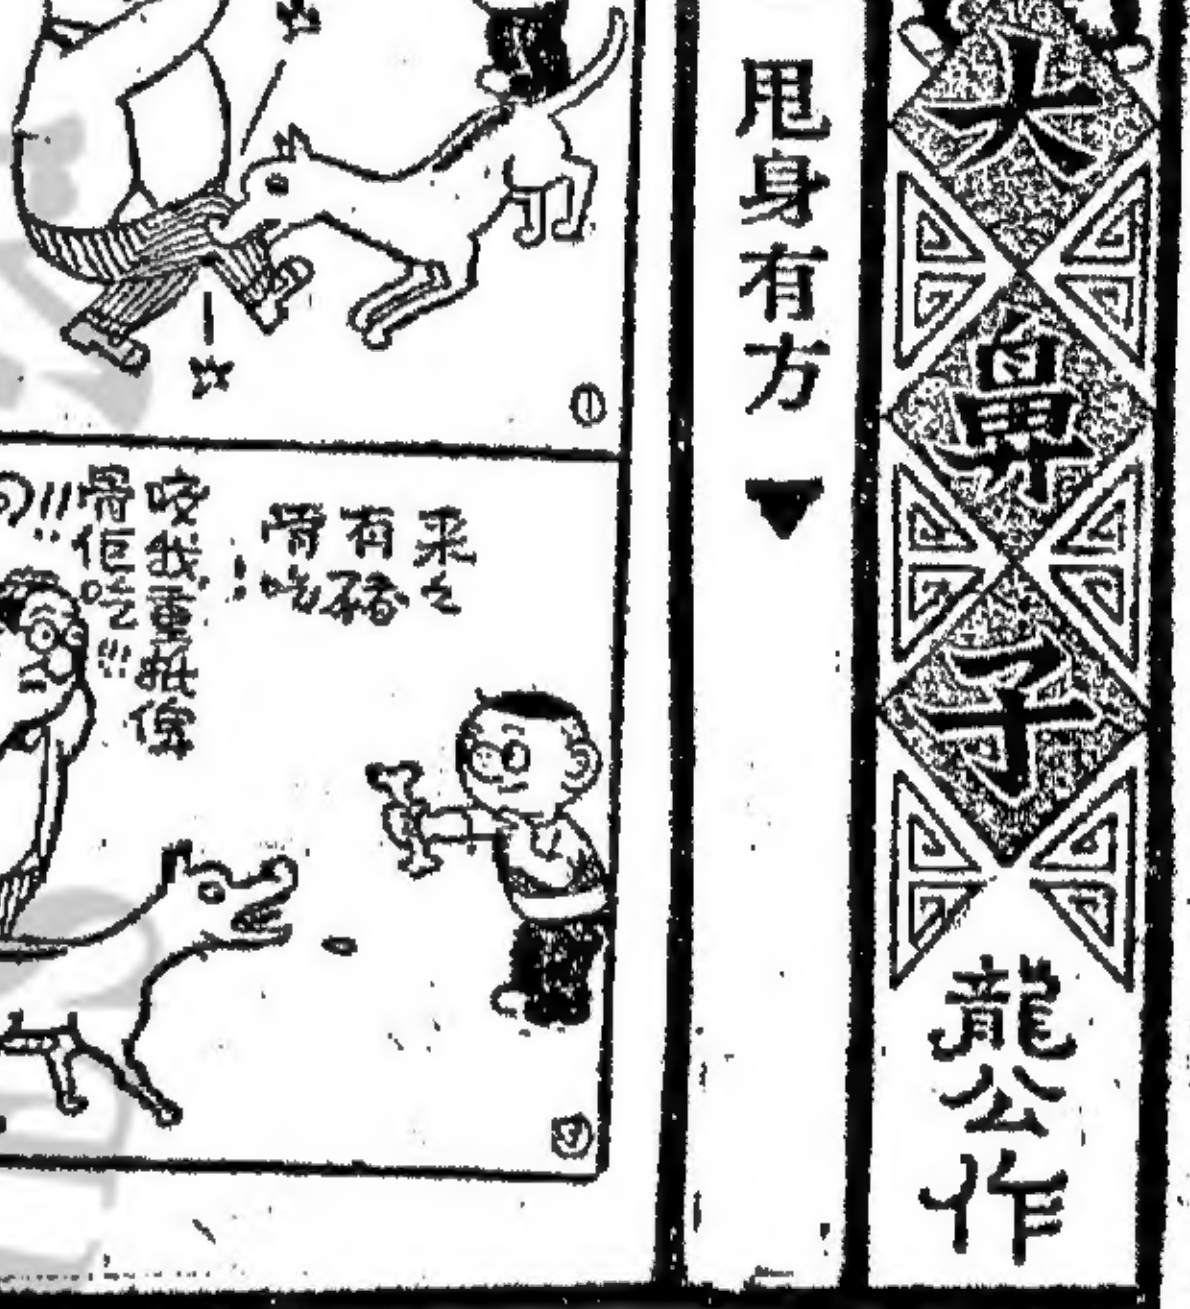 大鼻子
龍公作
甩身有方
①
来々
有豬
骨吃!
咬我重抵俾
骨佢吃!!!
③